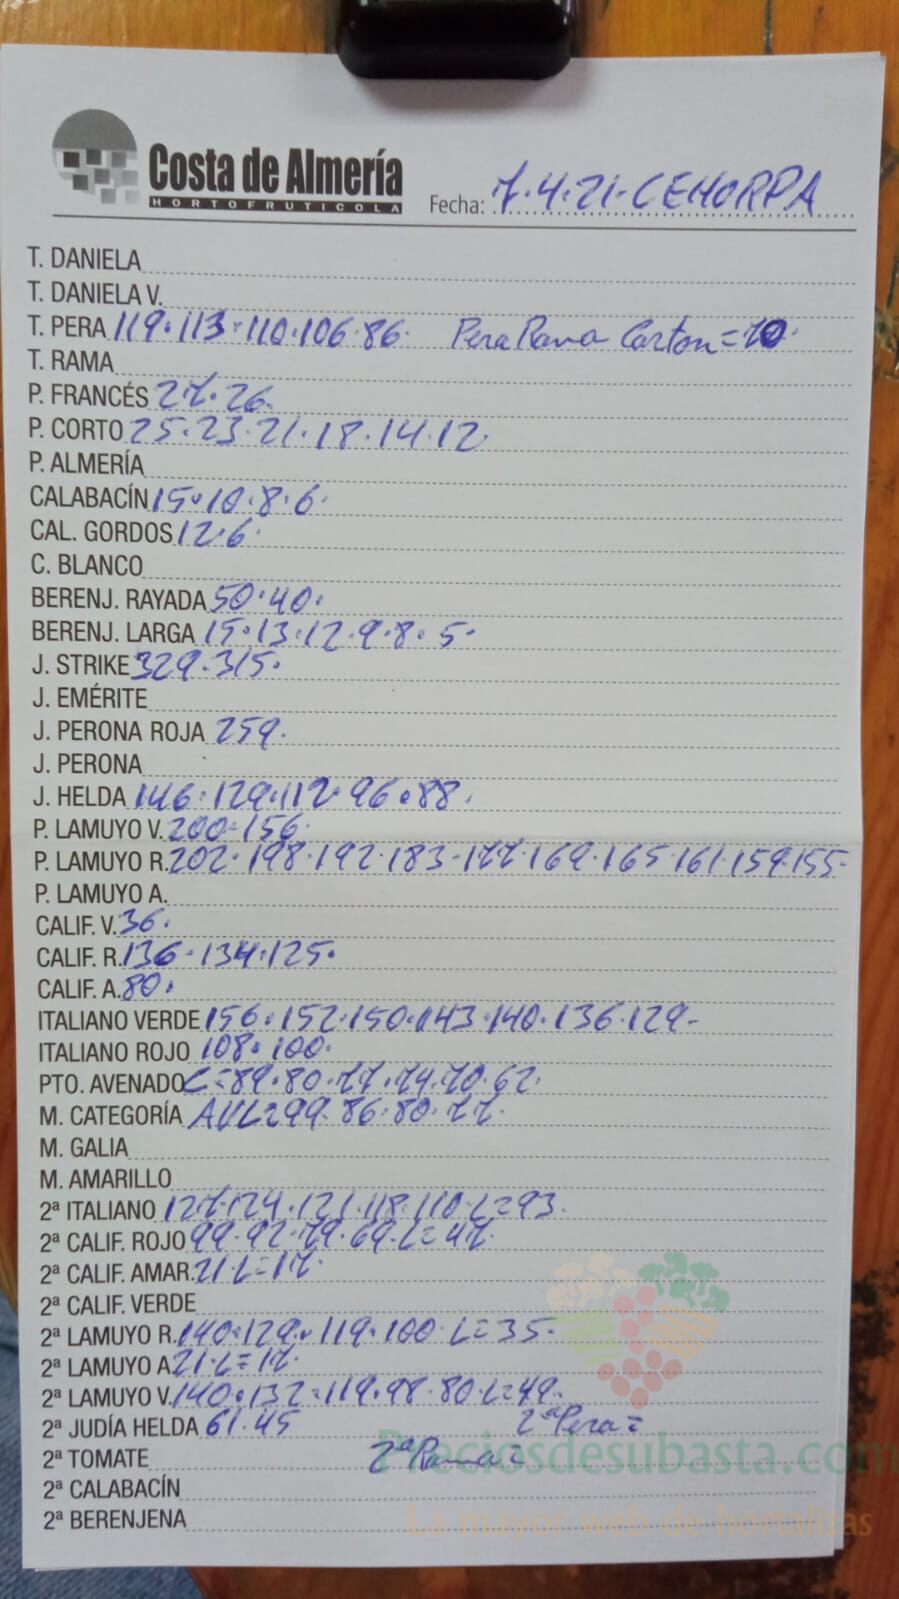 Costa de Almería
HORTOFRUTICOLA
Fecha: 7.4.21-CEHORPA
T. DANIELA
T. DANIELA V.
T. PERA 119.113.110.106.86. Pera Rama Carton=70.
T. RAMA
P. FRANCÉS 27.26.
P. CORTO 25.23.21.18.14.12
P. ALMERÍA
CALABACÍN 15.10.8.6.
CAL. GORDOS 12.6.
C. BLANCO
BERENJ. RAYADA 50.40.
BERENJ. LARGA 15.13.12.9.8.5.
J. STRIKE 329.315.
J. EMÉRITE
J. PERONA ROJA 259.
J. PERONA
J. HELDA 146.129.112.96.88.
P. LAMUYO V. 200.156.
P. LAMUYO R. 202.198.192.183-177.169.165.161.159.155-
P. LAMUYO A.
CALIF. V. 36.
CALIF. R. 136.134.125.
CALIF. A. 80.
ITALIANO VERDE 156.152.150.143.140.136.129-
ITALIANO ROJO 108.100.
PTO. AVENADO C=89.80.77.74.70.62.
M. CATEGORÍA AVL=99.86.80.77.
M. GALIA
M. AMARILLO
2ª ITALIANO 127.124.121.118.110.L=93.
2ª CALIF. ROJO 99.92.79.69.L=47.
2ª CALIF. AMAR. 21.L=17.
2ª CALIF. VERDE
2ª LAMUYO R. 140.129.119.100.L=35.
2ª LAMUYO A 21.L=17.
2ª LAMUYO V. 140.132.119.98.80.L=49.
2ª JUDÍA HELDA 61.45 2ª Pera=
2ª TOMATE 2ª Rama=
Preciosdesubasta.com
2ª CALABACÍN
2ª BERENJENA
La mayor web de hortalizas